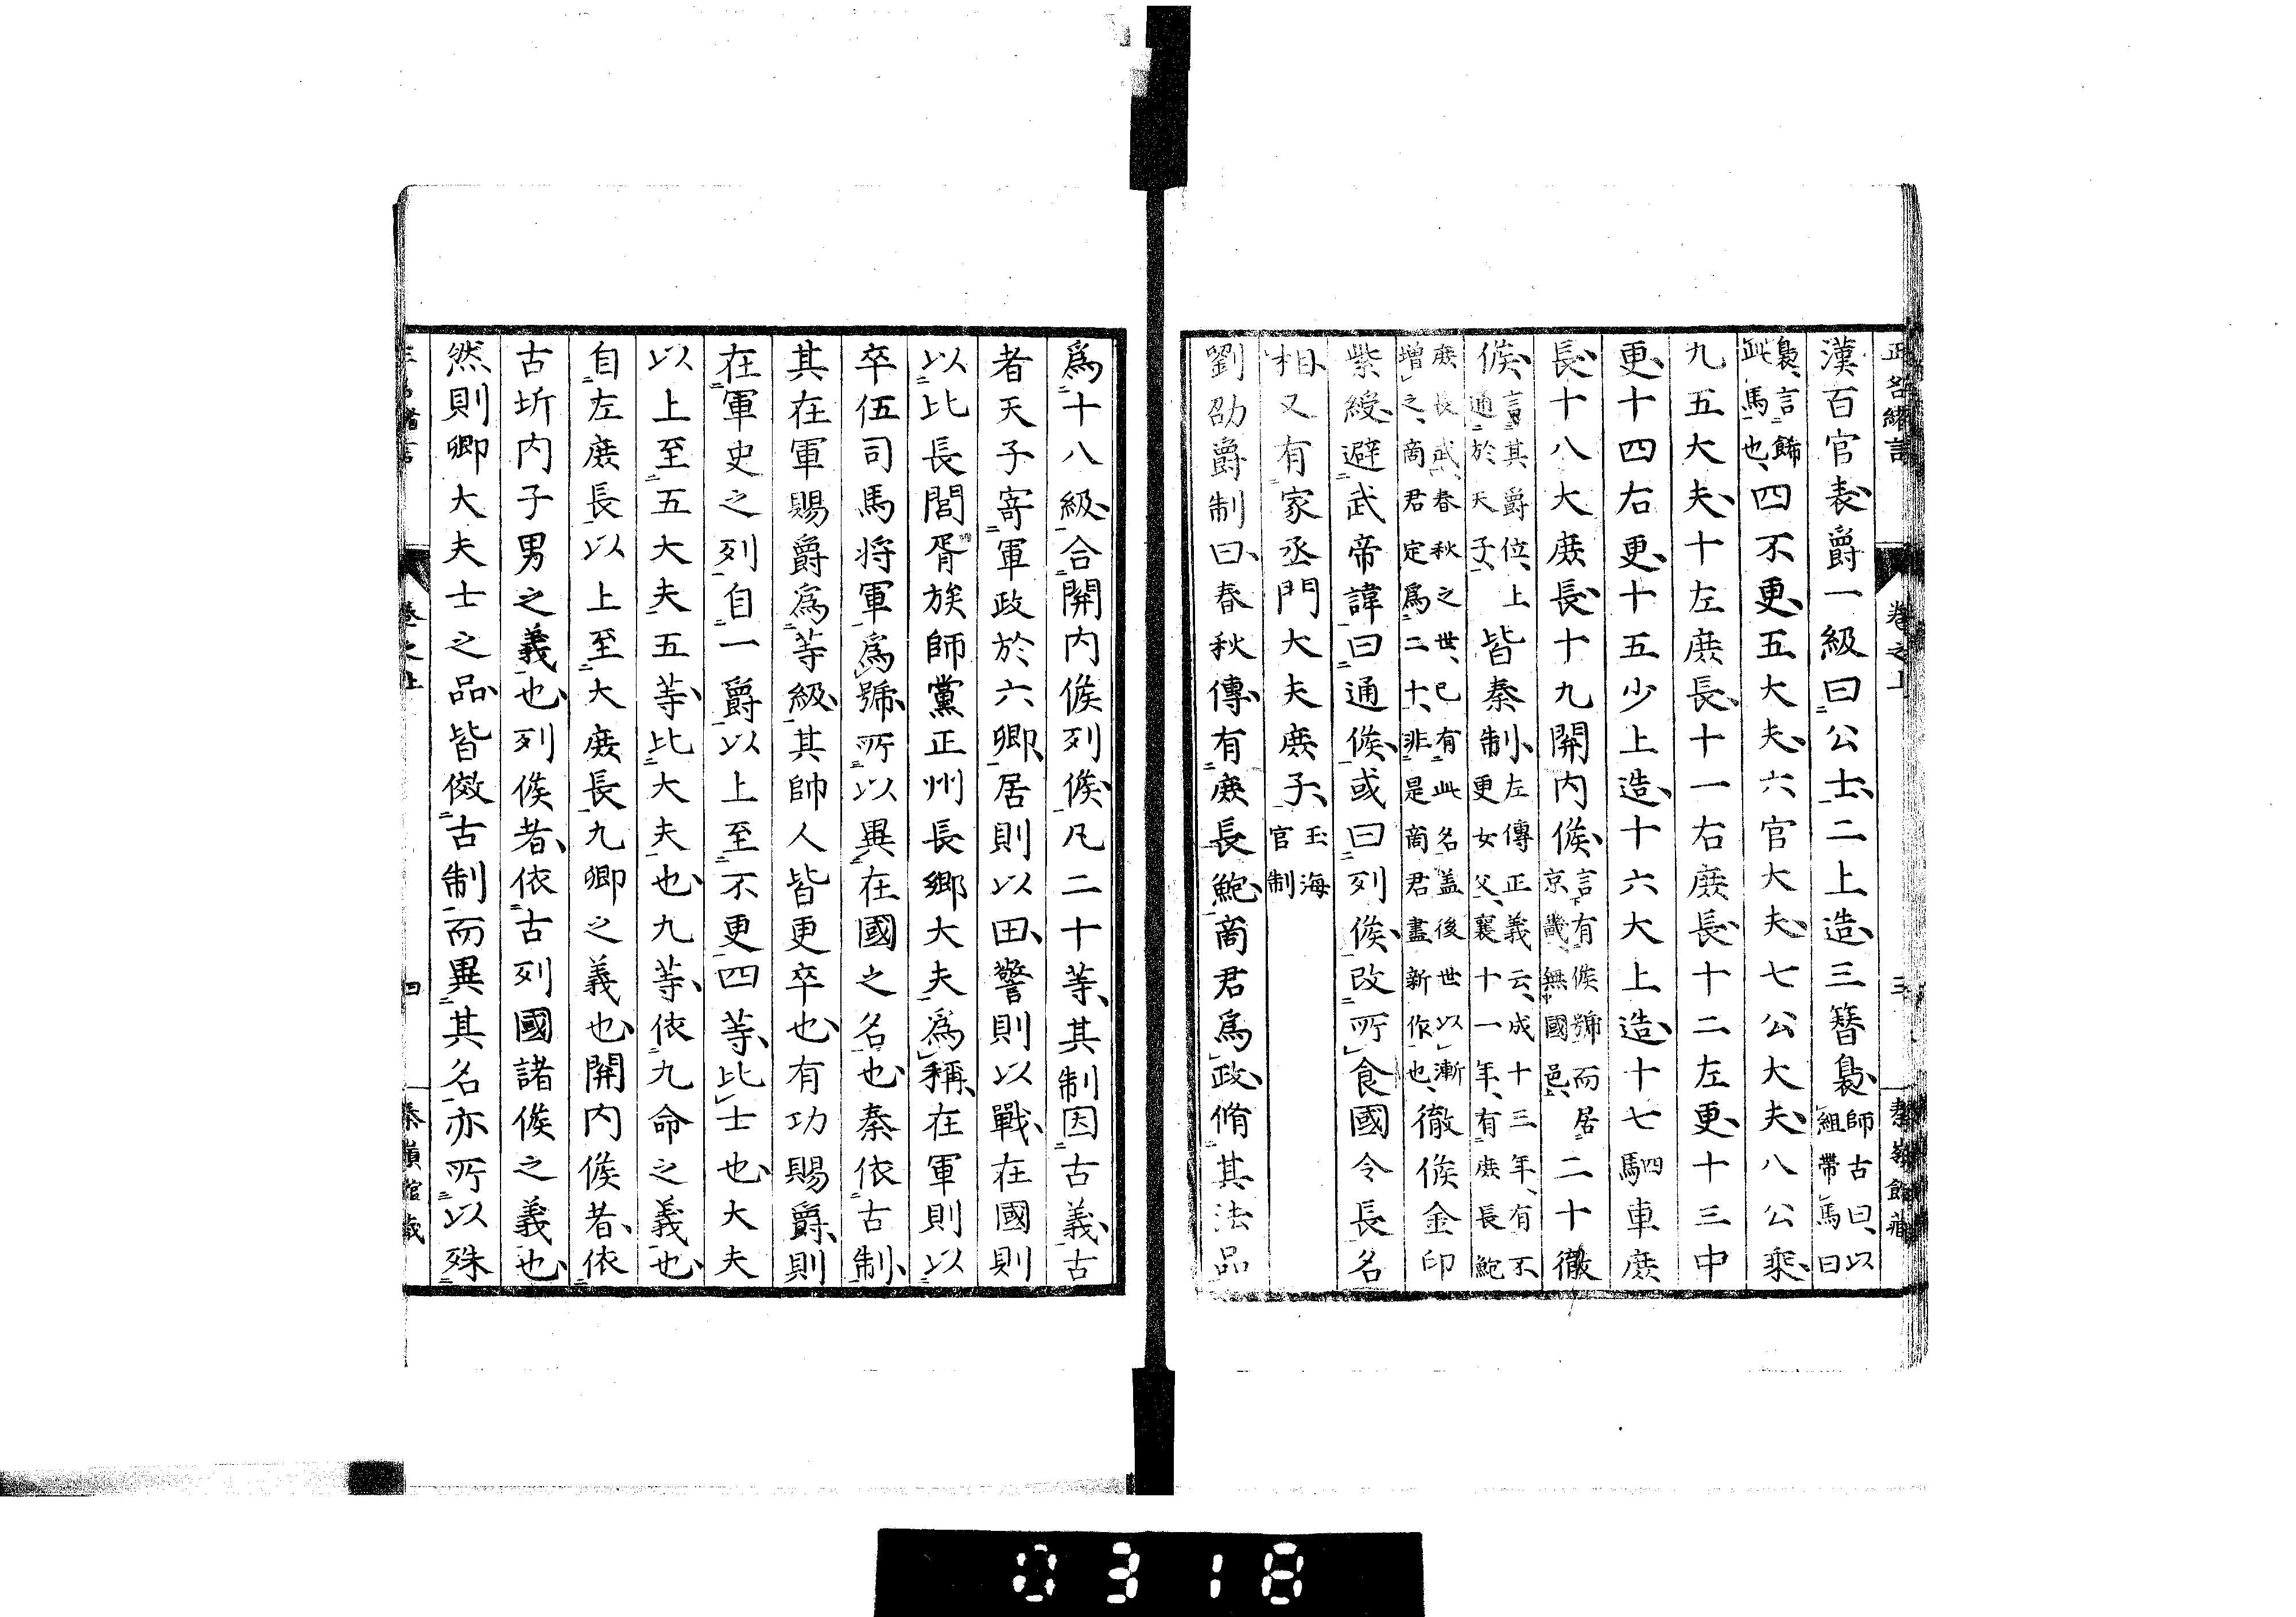 正名緒言 卷之上 三 泰嶺館藏
漢百官表爵一級曰公士二上造三簪裊師古曰以組帶馬曰
裊言飾此馬也四不更五大夫六官大夫七公大夫八公乘
九五大夫十左庶長十一右庶長十二左更十三中
更十四右更十五少上造十六大上造十七駟車庶
長十八大庶長十九關内侯言有侯號而居京畿無國邑二十徹
侯言其爵位上通於天子皆秦制左傳正義云成十三年有不更女父襄十一年有庶長鮑
庶長武春秋之世已有此名盖後世以漸增之商君定爲二十非是商君盡新作也徹侯金印
紫綬避武帝諱曰通侯或曰列侯改所食國令長名
相又有家丞門大夫庶子玉海官制
劉劭爵制曰春秋傳有庶長鮑商君爲政脩其法品
爲十八級合關内侯列侯凡二十等其制因古義古
者天子寄軍政於六卿居則以田警則以戰在國則
以比長閭胥族師黨正州長鄉大夫爲稱在軍則以
卒伍司馬将軍爲號所以異在國之名也秦依古制
其在軍賜爵爲等級其帥人皆更卒也有功賜爵則
在軍史之列自一爵以上至不更四等比士也大夫
以上至五大夫五等比大夫也九等依九命之義也
自左庶長以上至大庶長九卿之義也關内侯者依
古圻内子男之義也列侯者依古列國諸侯之義也
然則卿大夫士之品皆倣古制而異其名亦所以殊
卷之上 四